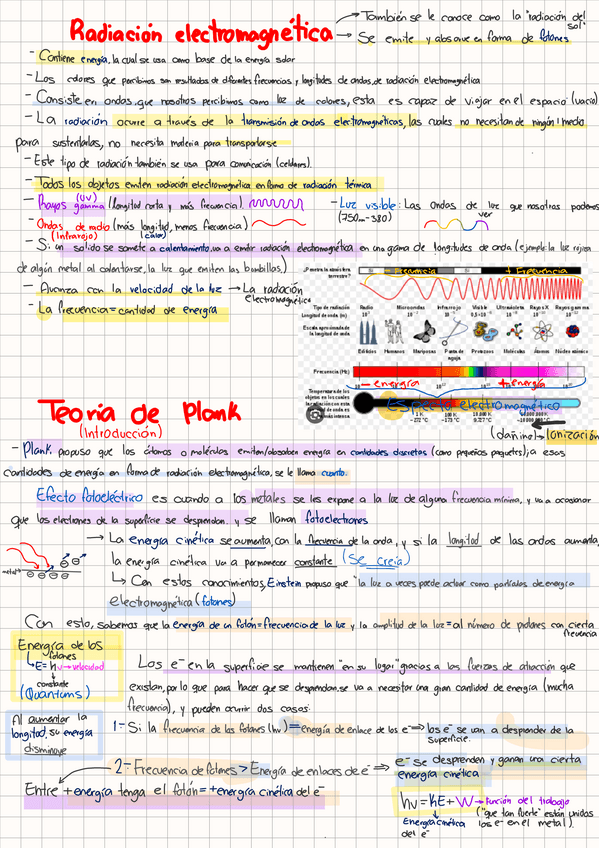 Radiación electromagnética
→ También se le conoce como la "radiación del sol"
→ Se emite y absorve en forma de fotones
- Contiene energía, la cual se usa como base de la energía solar
- Los colores que percibimos son resultados de diferentes frecuencias y longitudes de ondas, de radiación electromagnética
- Consiste en ondas que nosotros percibimos como luz de colores, esta es capaz de viajar en el espacio (vacío)
- La radiación ocurre a través de la transmisión de ondas electromagnéticas, las cuales no necesitan de ningún medio
para sustentarlas, no necesita materia para transportarse
- Este tipo de radiación también se usa para comunicación (celulares).
- Todos los objetos emiten radiación electromagnética en forma de radiación térmica
- Rayos gamma (UV) (longitud corta y más frecuencia)
- Luz visible: Las ondas de luz que nosotros podemos ver
(750nm-380)
- Ondas de radio (más longitud, menos frecuencia)
(Infrarojo) (calor)
- Si un solido se somete a calentamiento, va a emitir radiación electromagnética en una gama de longitudes de onda (ejemplo: la luz rojiza
de algún metal al calentarse, la luz que emiten las bombillas)
- Avanza con la velocidad de la luz → La radiación electromagnética
- La frecuencia = cantidad de energía
¿Penetra la atmósfera terrestre?
- Frecuencia + Frecuencia
Tipo de radiación Radio Microondas Infrarrojo Visible Ultravioleta Rayos X Rayos gamma
Longitud de onda (m)
Escala aproximada de la longitud de onda
Edificios Humanos Mariposas Punta de aguja Protozoos Moléculas Átomos Núcleo atómico
Frecuencia (Hz)
- energía + energía
Temperatura de los objetos en los cuales
Espectro electromagnético
1 K 100 K 10.000 K
-272 °C -173 °C 9.727 °C
(dañino) → Ionización
Teoría de Plank
(Introducción)
- Plank propuso que los átomos o moléculas emiten/absorben energía en cantidades discretas (como pequeños paquetes); a esas
cantidades de energía en forma de radiación electromagnética, se le llama cuanto.
Efecto fotoeléctrico es cuando a los metales se les expone a la luz de alguna frecuencia mínima, y va a ocasionar
que los electrones de la superficie se desprendan. y se llaman fotoelectrones
metal
→ La energía cinética se aumenta, con la frecuencia de la onda, y si la longitud de las ondas aumenta,
la energía cinética va a permanecer constante (Se creía)
↳ Con estos conocimientos, Einstein propuso que "la luz a veces puede actuar como partículas de energía
electromagnética (fotones)
Con esto, sabemos que la energía de un fotón = frecuencia de la luz y la amplitud de la luz = al número de fotones con cierta
frecuencia
Energía de los fotones
↳ E = hν → velocidad
↓
constante
(Quantums)
Al aumentar la
longitud, su energía
disminuye
Los e⁻ en la superficie se mantienen "en su lugar" gracias a las fuerzas de atracción que
existan, por lo que para hacer que se desprendan, se va a necesitar una gran cantidad de energía (mucha
frecuencia), y pueden ocurrir dos casos:
1- Si la frecuencia de los fotones (hν) = energía de enlace de los e⁻ ⇒ los e⁻ se van a desprender de la
superficie.
2- Frecuencia de fotones > Energía de enlaces de e⁻ ⇒ e⁻ se desprenden y ganan una cierta
energía cinética
Entre + energía tenga el fotón = + energía cinética del e⁻
hν = KE + W → función del trabajo
("que tan fuerte" están unidos
los e⁻ en el metal).
Energía cinética
del e⁻